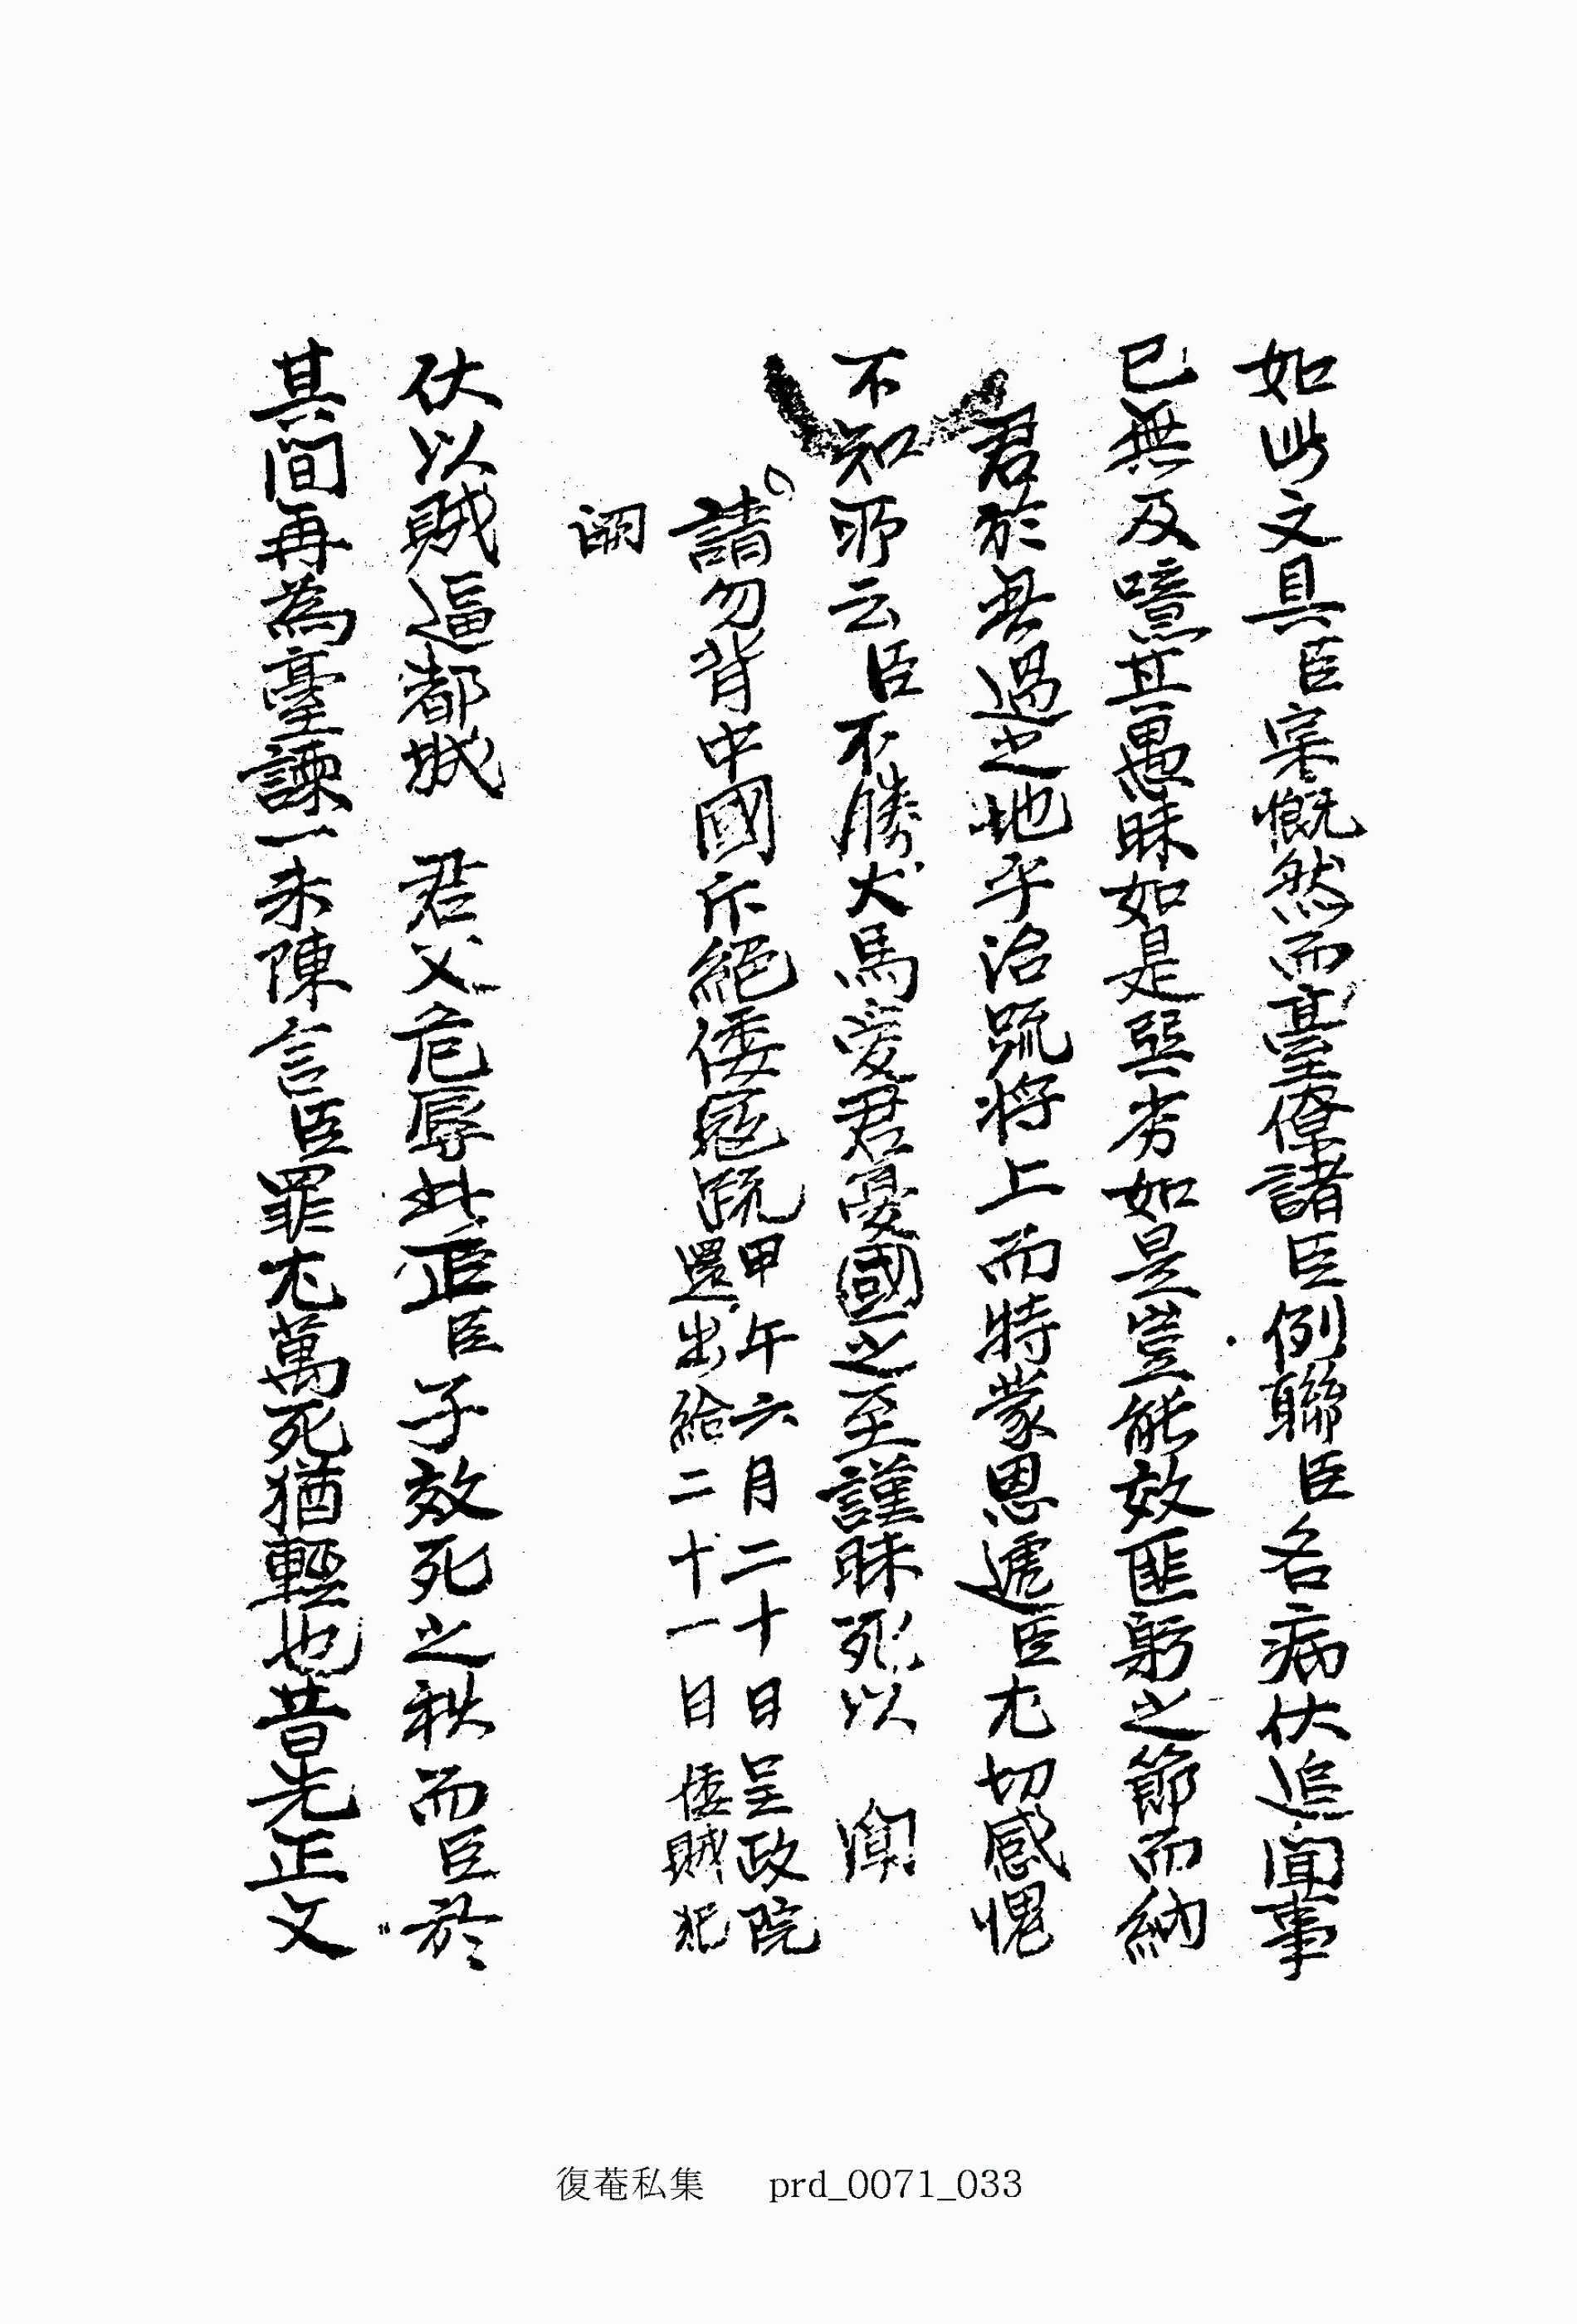 如此文具臣寀慨然而臺僚諸臣例聯臣名病伏追聞事
已無及噫其愚昧如是巽劣如是豈能效匪躬之節而納
君於無過之地乎治疏將上而特蒙恩遞臣尤切感愧
不知所云臣不勝犬馬愛君憂國之至謹昧死以 聞
請勿背中國斥絕倭寇疏 甲午六月二十日呈政院
還出給二十一日倭賊犯
闕
伏以賊逼都城 君父危辱此正臣子效死之秋而臣於
其間再為臺諫一未陳言臣罪尤萬死猶輕也昔先正文
復菴私集 prd_0071_033